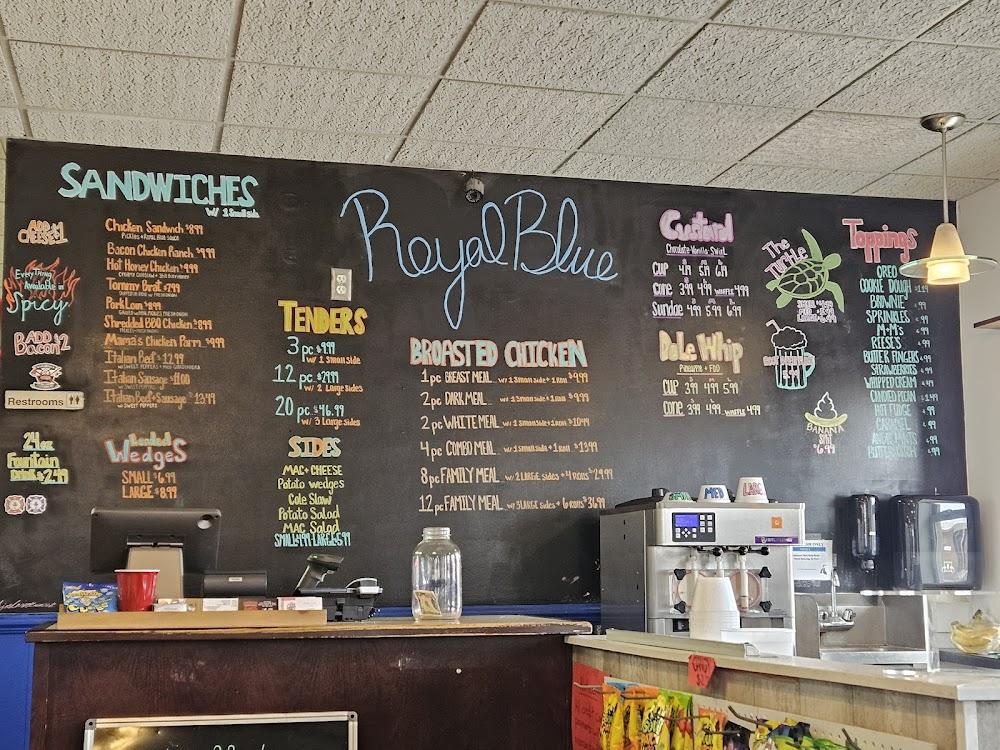 SANDWICHES
w/ 1 Small side
ADD CHEESE $1
Everything Available in Spicy
ADD Bacon $2
Restrooms
24oz
Fountain
Drinks $2.49
Chicken Sandwich $8.99
Pickles + Royal Blue Sauce
Bacon Chicken Ranch $9.99
Hot Honey Chicken $9.99
Tommy Brat $7.99
PorkLoin $8.99
Shredded BBQ Chicken $8.99
Mama's Chicken Parm $9.99
Italian Beef $12.99
Italian Sausage $11.00
w/ SWEET PEPPERS
Italian Beef & Sausage $13.49
w/ SWEET PEPPERS
Loaded
Wedges
SMALL $6.99
LARGE $8.99
Royal Blue
TENDERS
3 pc $9.99
w/ 1 small side
12 pc $29.99
w/ 2 Large sides
20 pc $46.99
w/ 3 Large sides
SIDES
MAC + CHEESE
Potato wedges
Cole Slaw
Potato Salad
MAC Salad
SMALL $1.99 LARGE $5.99
BROASTED CHICKEN
1 pc BREAST MEAL w/ 1 small side + 1 Roll $9.99
2 pc DARK MEAL w/ 1 small side + 1 Roll $9.99
2 pc WHITE MEAL w/ 1 small side + 1 Roll $10.99
4 pc COMBO MEAL w/ 1 small side + 1 Roll $13.99
8 pc FAMILY MEAL w/ 2 LARGE sides + 4 Rolls $29.99
12 pc FAMILY MEAL w/ 3 LARGE sides + 6 Rolls $36.99
Custard
Chocolate · Vanilla · Swirl
S M L
CUP 4.19 5.19 6.19
Cone 3.99 4.99 WAFFLE 4.99
Sundae 4.99 5.99 6.99
Dole Whip
Pineapple + FOD
CUP 3.99 4.99 5.99
CONE 3.99 4.99 WAFFLE 4.99
The Turtle
BANANA
Split
$6.99
Toppings
OREO
COOKIE DOUGH $1.49
BROWNIE
SPRINKLES .99
M+M's .99
REESE'S .99
BUTTER FINGERS .99
STRAWBERRIES .99
WHIPPED CREAM
CANDIED PECAN $1.49
HOT FUDGE .99
CARAMEL .99
MED
LARG